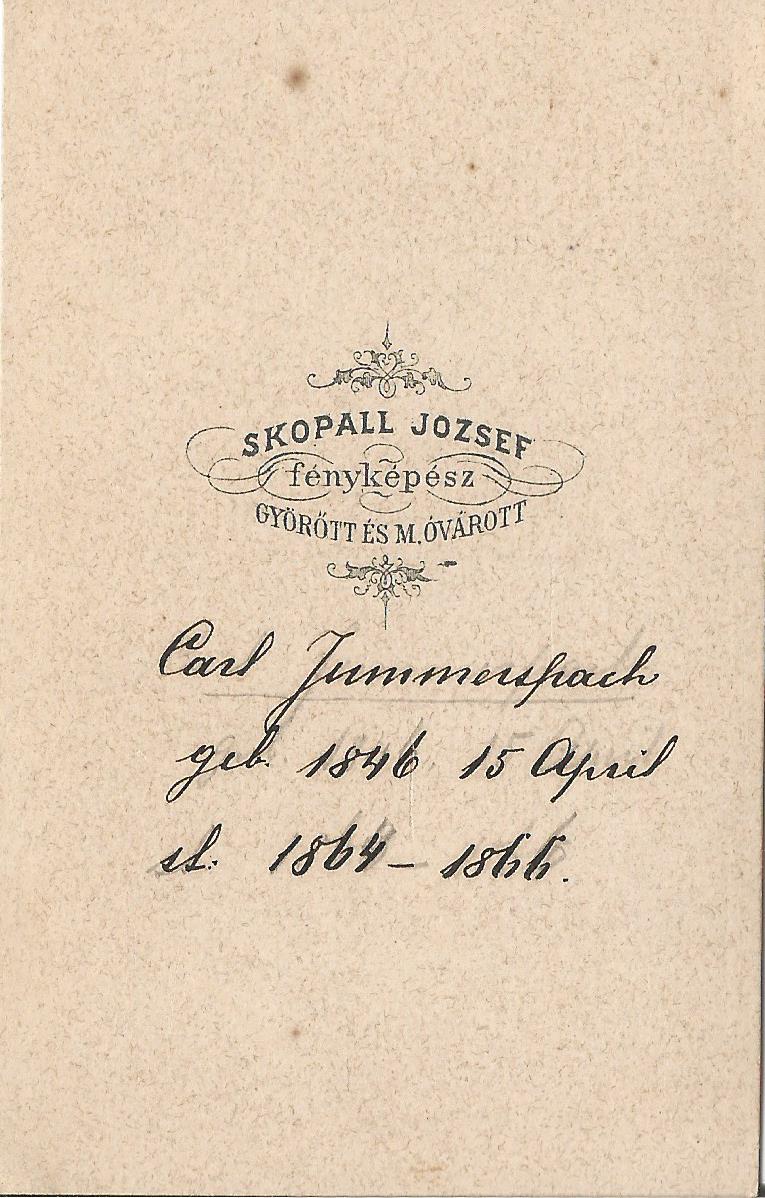 SKOPALL JOZSEF
fényképész
GYÖRŐTT ÉS M. ÓVÁROTT
Carl Jummerspach
geb. 1846 15 April
st. 1864 – 1866.